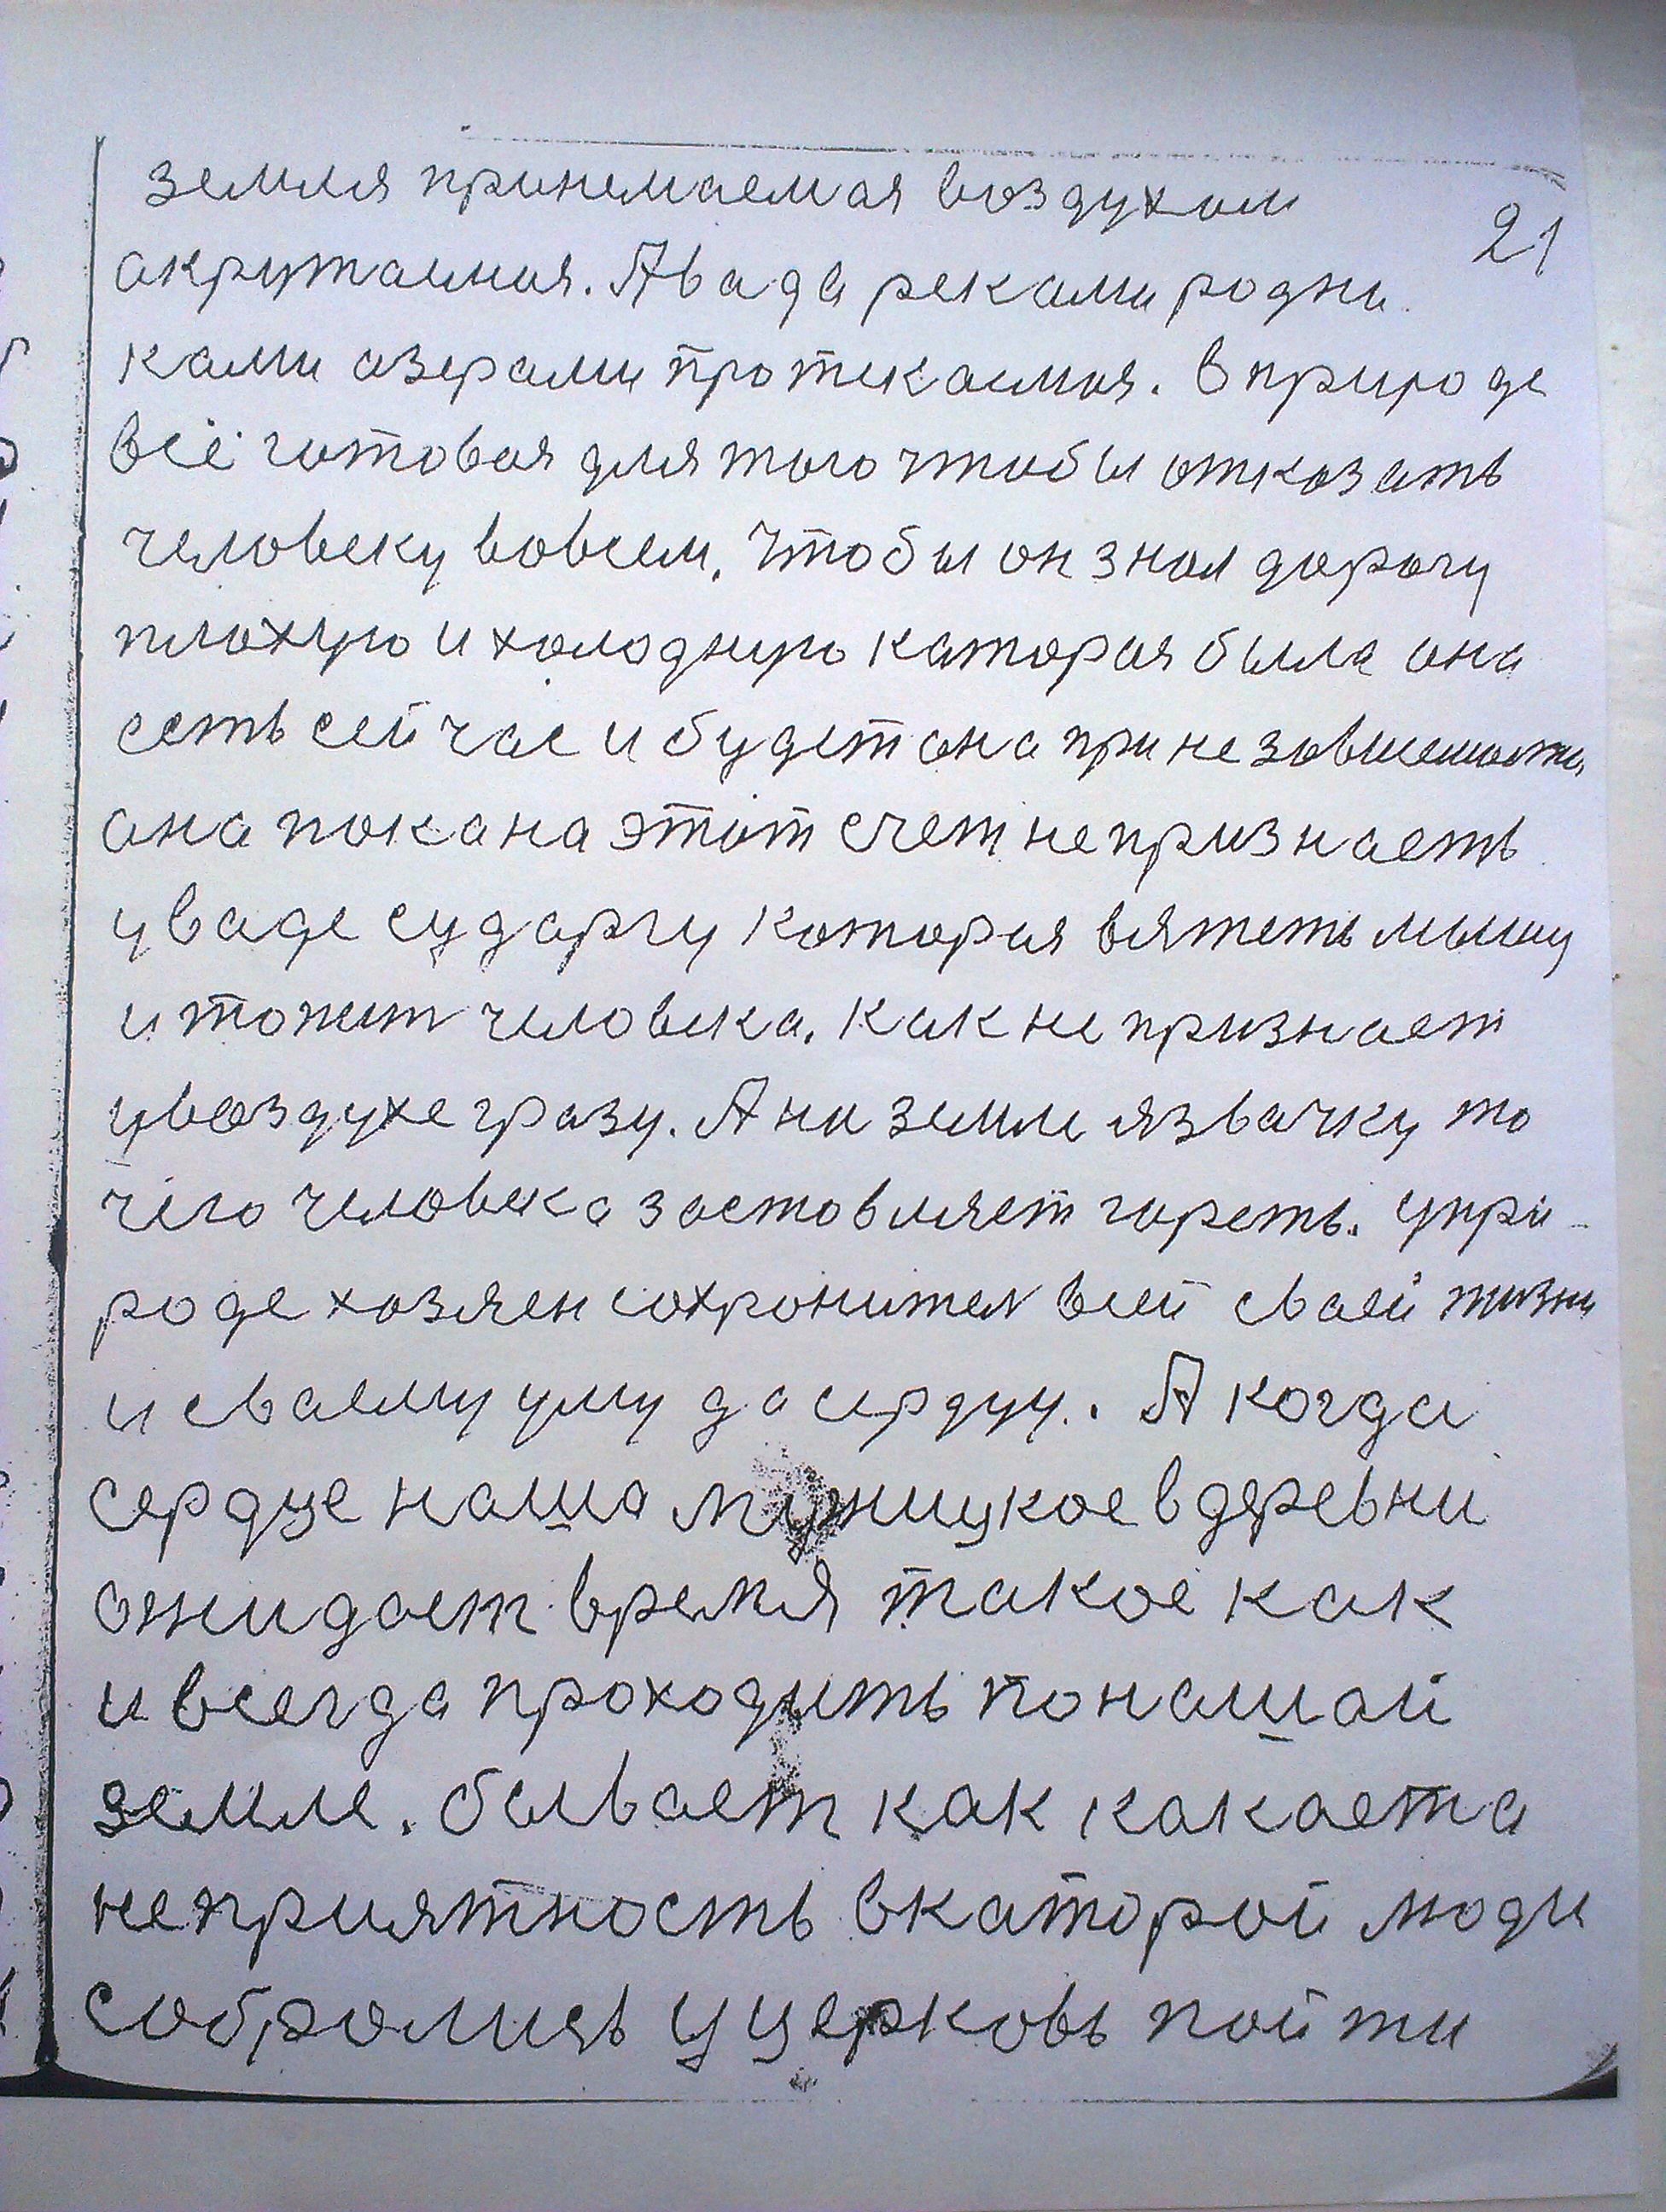 земля принемаемая воздухом
21
акружаемая. А вада реками родни
ками азерами протекаемая. В природе
всё готовая для того чтобы отказать
человеку вовсем. Чтобы он знал дорогу
плохую и холодную каторая была она
есть сейчас и будет она при незовисемости
она пока на этот счет непризнаеть
у ваде судоргу которая вяжеть мышцу
и топит человека. Как не признает
у воздухе гразу. А на земле язвачку то
чего человека застовляет гореть. У при-
роде хозяен сохронител всей сваей жизни
и сваему уму да сердцу. А когда
сердце нашо мужицкое в деревни
ожидает время такое как
и всегда проходить по нашай
земле. бывает как какаета
неприятность в каторой люди
собролись у церковь пойти